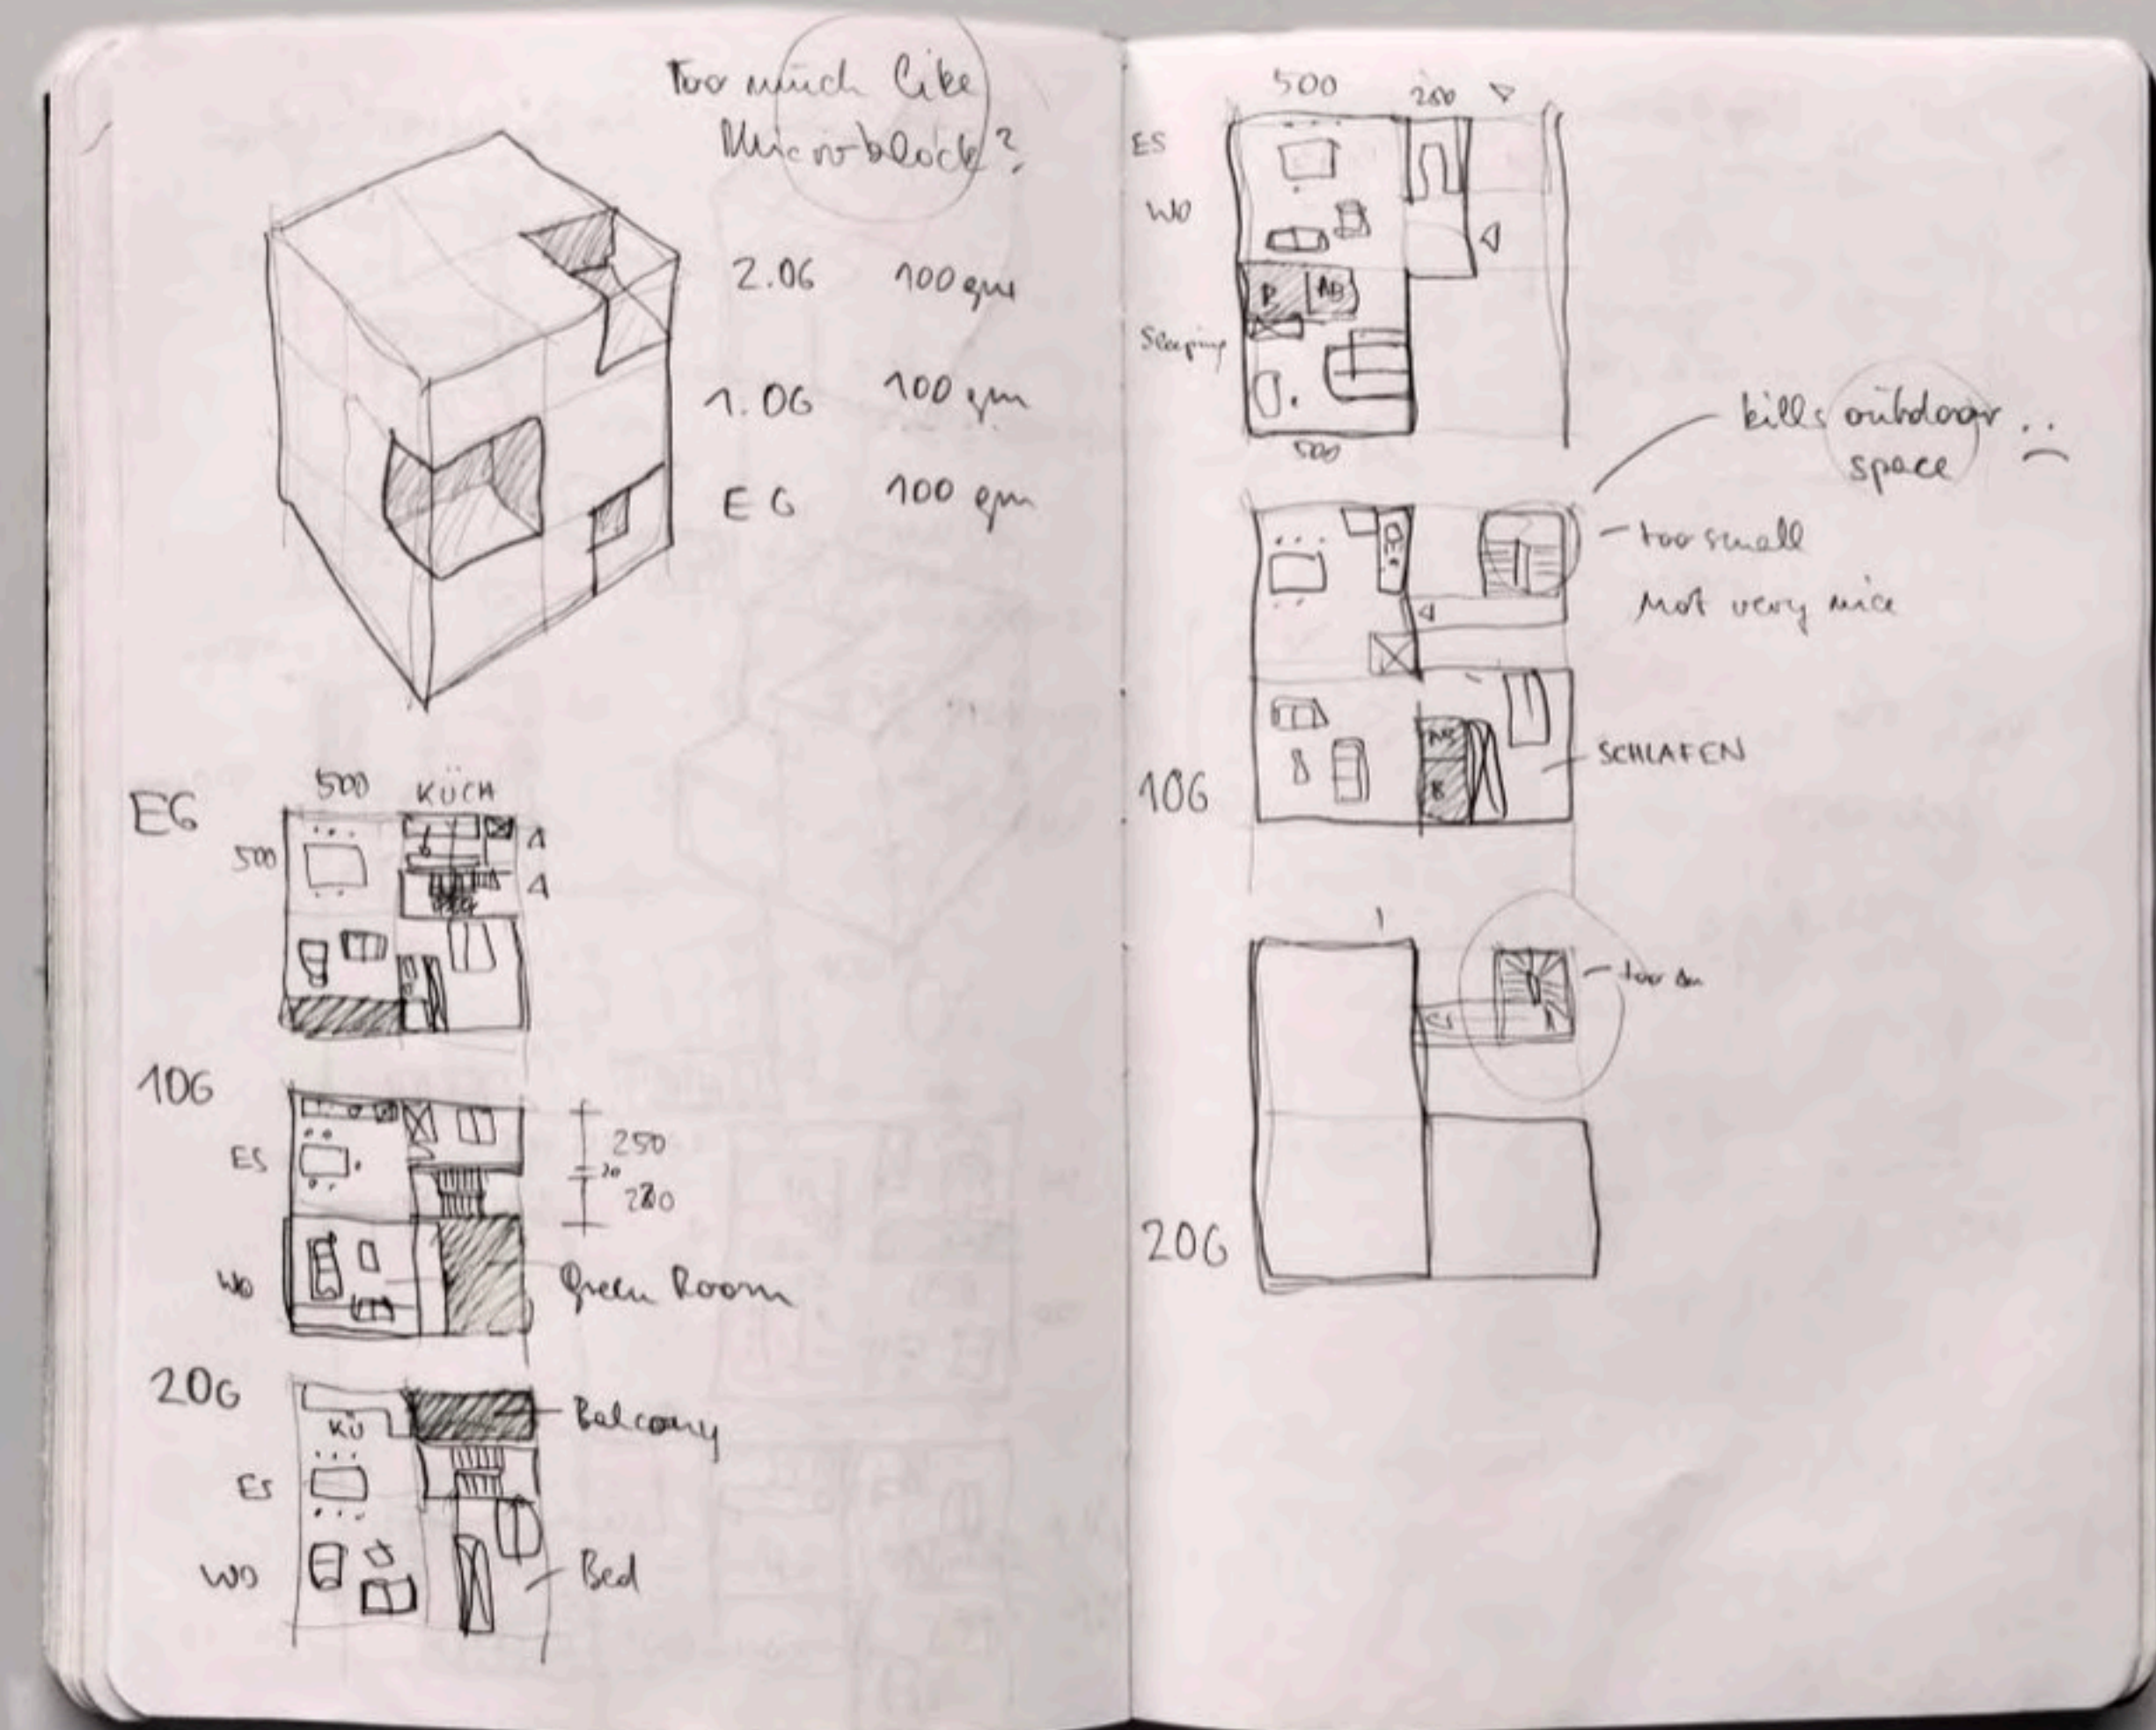 Too much like
Microblock?
2.OG 100 qm
1.OG 100 qm
EG 100 qm
EG
500 KÜCH
500
1OG
ES
250
20
WO
Green Room
2OG
Balcony
KÜ
ES
WO
Bed
500
ES
WO
B AB
Sleeping
500
kills outdoor
space
too small
Not very nice
B
SCHLAFEN
1OG
too
2OG